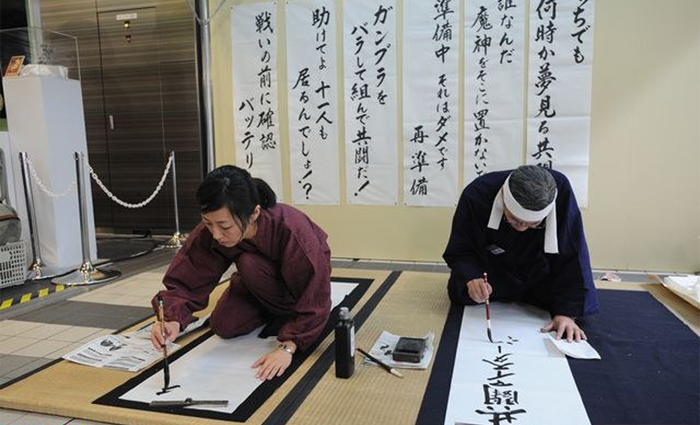 ちでも
何時か夢見る共
誰なんだ
魔神をそこに置かない
準備中 それはダメです
再準備
ガンプラを
バラして組んで共闘だ!
助けてよ 十一人も
居るんでしょ!?
戦いの前に確認
バッテリ
共闘マイスター